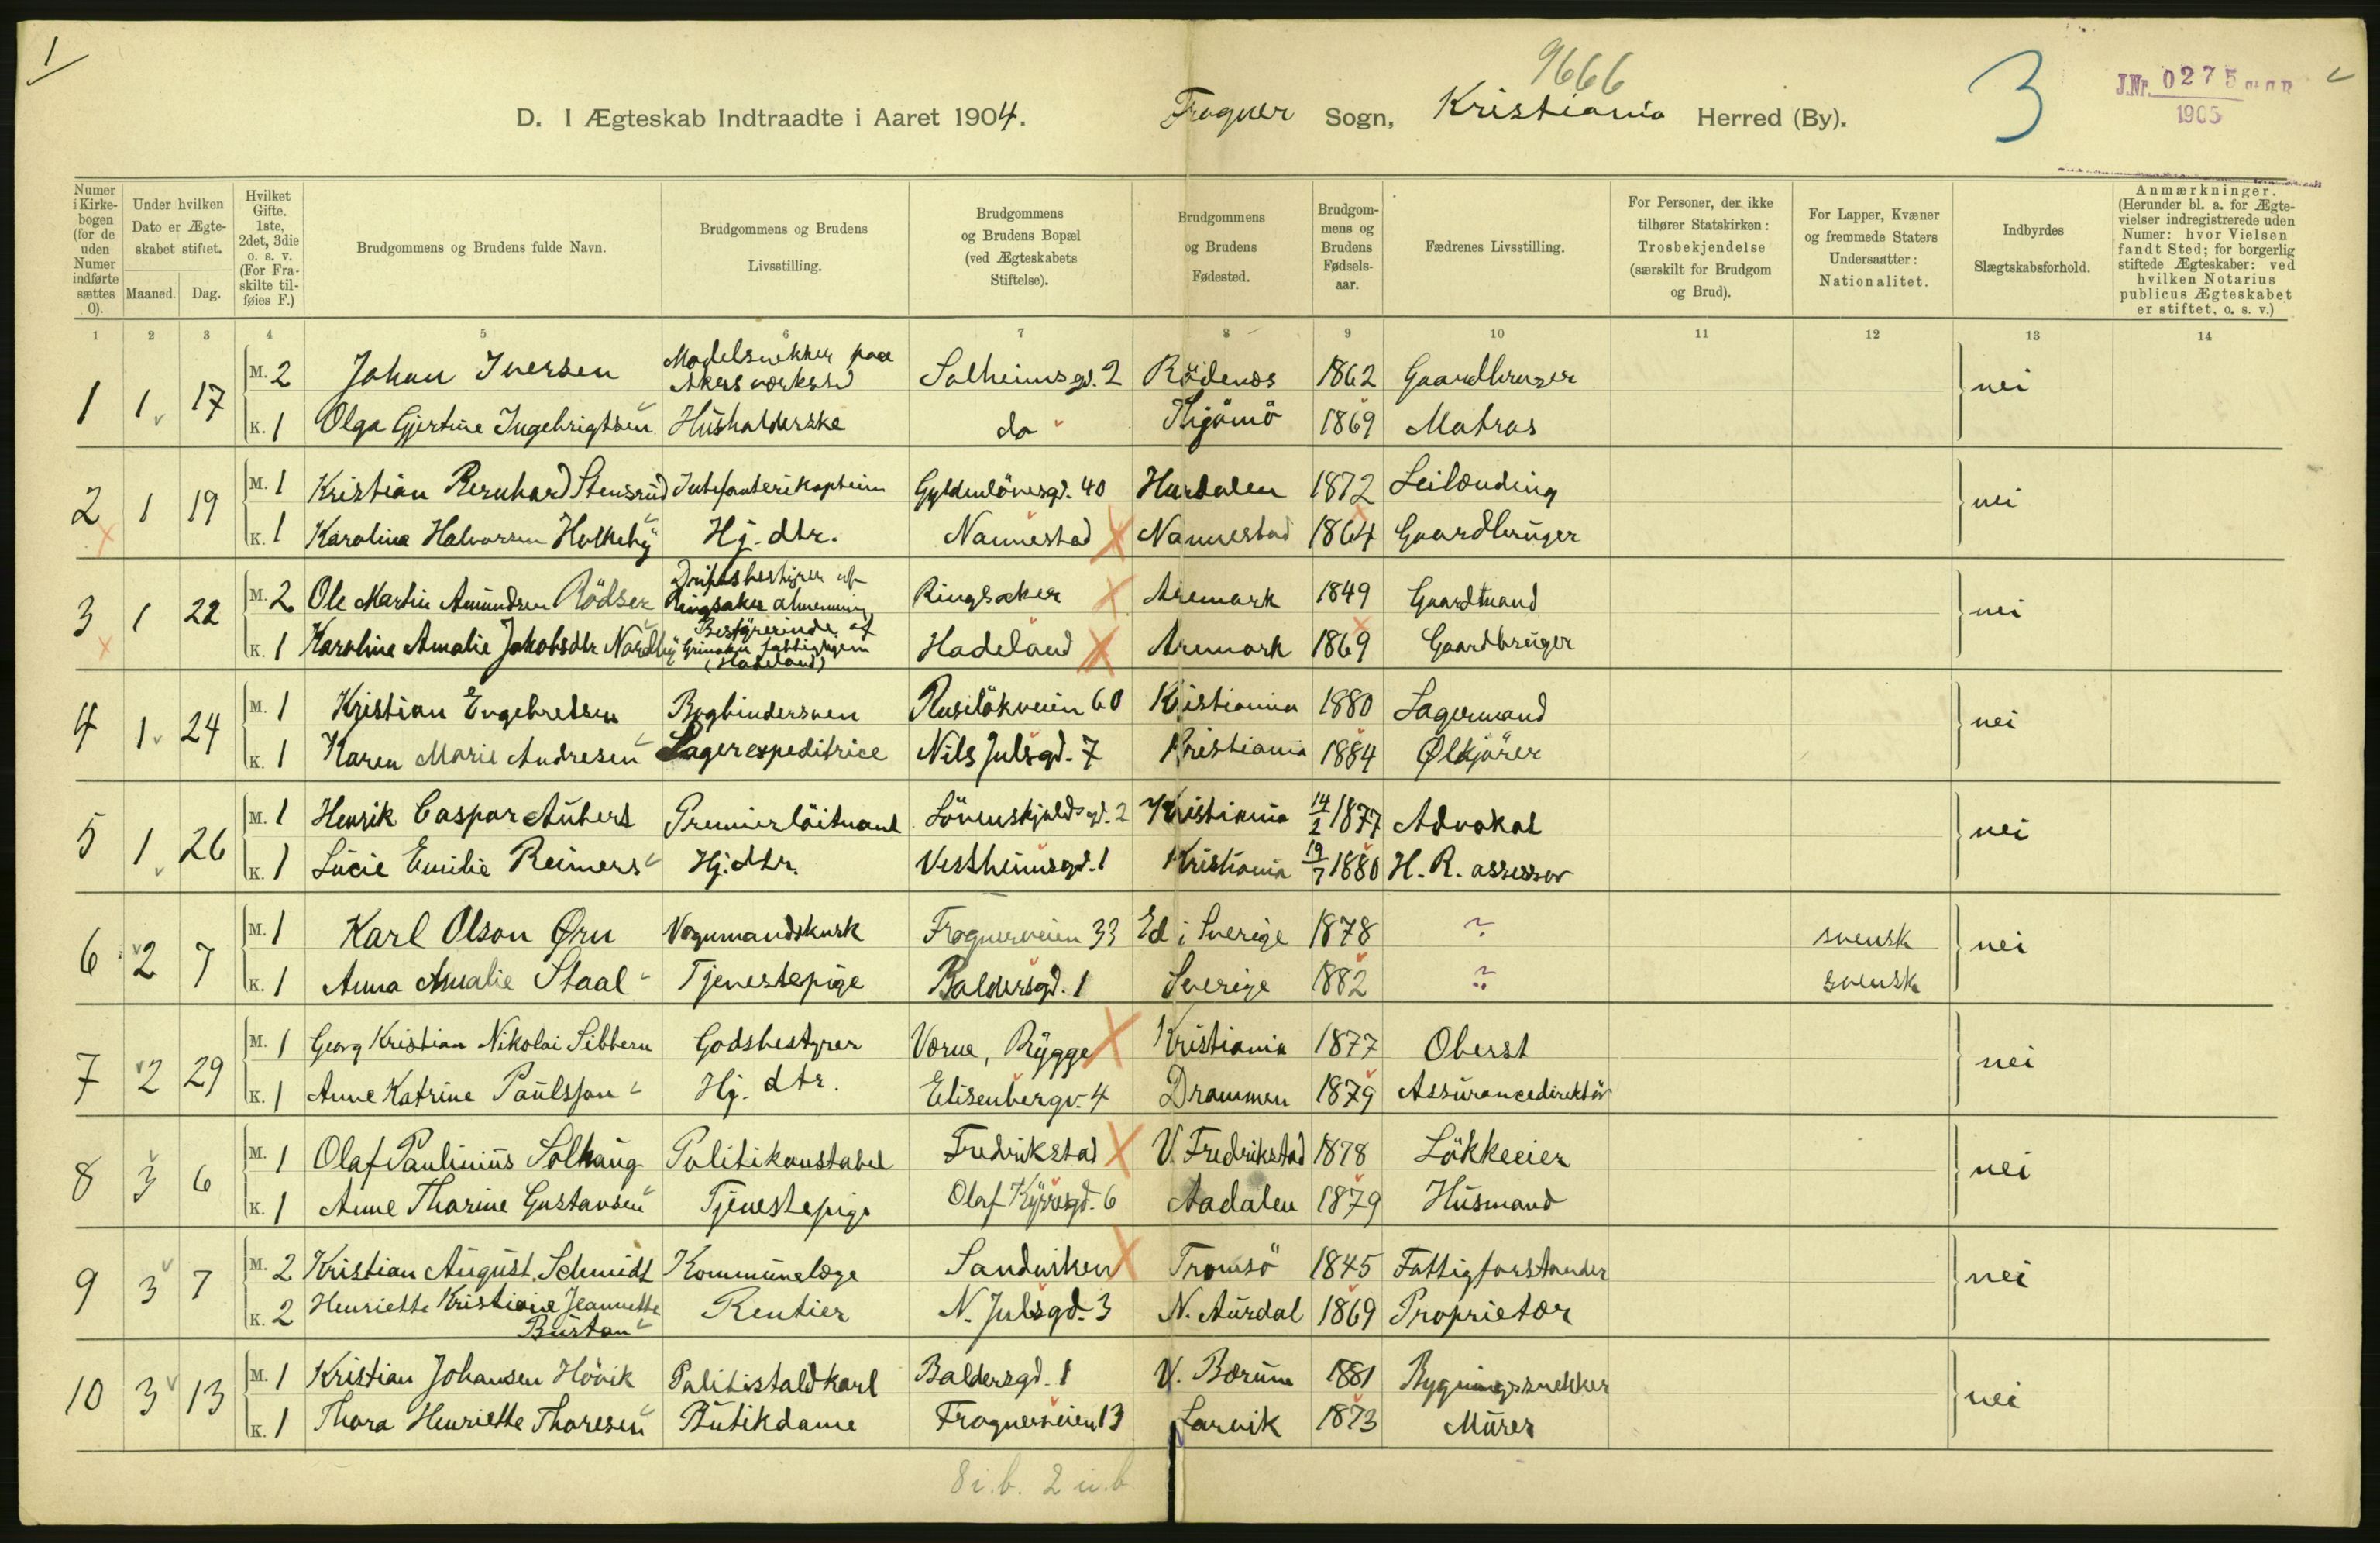 1
9666
3
J.Nr. 0275
1905
D. I Ægteskab Indtraadte i Aaret 1904. Frogner Sogn, Kristiania Herred (By).
Numer i Kirkebogen (for de uden Numer indførte sættes 0).
Under hvilken Dato er Ægteskabet stiftet.
Maaned. Dag.
Hvilket Gifte. 1ste, 2det, 3die o. s. v. (For Fraskilte tilføies F.)
Brudgommens og Brudens fulde Navn.
Brudgommens og Brudens Livsstilling.
Brudgommens og Brudens Bopæl (ved Ægteskabets Stiftelse).
Brudgommens og Brudens Fødested.
Brudgommens og Brudens Fødselsaar.
Fædrenes Livsstilling.
For Personer, der ikke tilhører Statskirken: Trosbekjendelse (særskilt for Brudgom og Brud).
For Lapper, Kvæner og fremmede Staters Undersaatter: Nationalitet.
Indbyrdes Slægtskabsforhold.
Anmærkninger. (Herunder bl. a. for Ægtevielser indregistrerede uden Numer: hvor Vielsen fandt Sted; for borgerlig stiftede Ægteskaber: ved hvilken Notarius publicus Ægteskabet er stiftet, o. s. v.)
1 2 3 4 5 6 7 8 9 10 11 12 13 14
1 1 17 M. 2 Johan Iversen Modelsnekker paa Akers værksted Solheimsgd. 2 Rödenes 1862 Gaardbruger nei
K. 1 Olga Gjertine Ingebrigtsen Husholderske do Thjömö 1869 Matros
2 1 19 M. 1 Kristian Bernhard Stensrud Gyldenlövesgd. 40 Hurdalen 1872 Leilænding nei
K. 1 Karoline Halvorsen Holkeby Hj. dtr. Nannestad Nannestad 1864 Gaardbruger
3 1 22 M. 2 Ole Martin Amundsen Rödser Driftsbestyrer af Ringsaker almenning Ringsaker Aremark 1849 Gaardmand nei
K. 1 Karoline Amalie Jakobsdtr Nordby Bestyrerinde af fattighjem (Hadeland) Hadeland Aremark 1869 Gaardbruger
4 1 24 M. 1 Kristian Engebretsen Bogbindersven Ruselökveien 60 Kristiania 1880 Lagermand nei
K. 1 Karen Marie Andresen Lagerexpeditrice Nils Julsgd. 7 Kristiania 1884 Ølkjörer
5 1 26 M. 1 Henrik Caspar Aubert Premierlöitnant Lövenskjoldsgd. 2 Kristiania 14/2 1877 Advokat nei
K. 1 Lucie Emilie Reimers Hj. dtr. Vestheimsgd. 1 Kristiania 19/7 1880 H. R. assessor
6 2 7 M. 1 Karl Olson Ørn Vognmandskusk Frognerveien 33 Ed i Sverige 1878 ? svensk nei
K. 1 Anna Amalie Staal Tjenestepige Baldersgd. 1 Sverige 1882 ? svensk
7 2 29 M. 1 Georg Kristian Nikolai Sibbern Godsbestyrer Værne, Rygge Kristiania 1877 Oberst nei
K. 1 Anne Katrine Paulsson Hj. dtr. Elisenbergv. 4 Drammen 1879 Assurancedirektör
8 3 6 M. 1 Olaf Paulinius Solhaug Politikonstabel Fredrikstad V. Fredrikstad 1878 Lökkeeier nei
K. 1 Anne Tharine Gustavsen Tjenestepige Olaf Kyrresgd. 6 Aadalen 1879 Husmand
9 3 7 M. 2 Kristian August Schmidt Kommunelæge Sandviken Tromsö 1845 Fattigforstander nei
K. 2 Henriette Kristiane Jeannette Burton Rentier N. Julsgd. 3 N. Aurdal 1869 Proprietær
10 3 13 M. 1 Kristian Johansen Hövik Politistaldkarl Baldersgd. 1 V. Bærum 1881 Bygningssnekker nei
K. 1 Thora Henriette Thoresen Butikdame Frognerveien 13 Larvik 1873 Murer
8 i.b. 2 u.b.